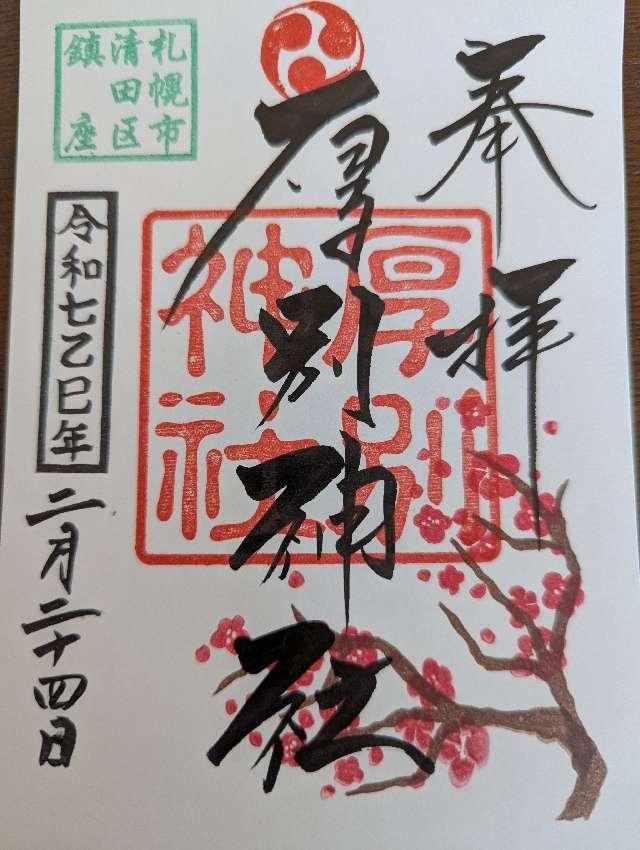 奉拝
厚別神社
厚別
神社
札幌市
清田区
鎮座
令和七乙巳年
二月二十四日